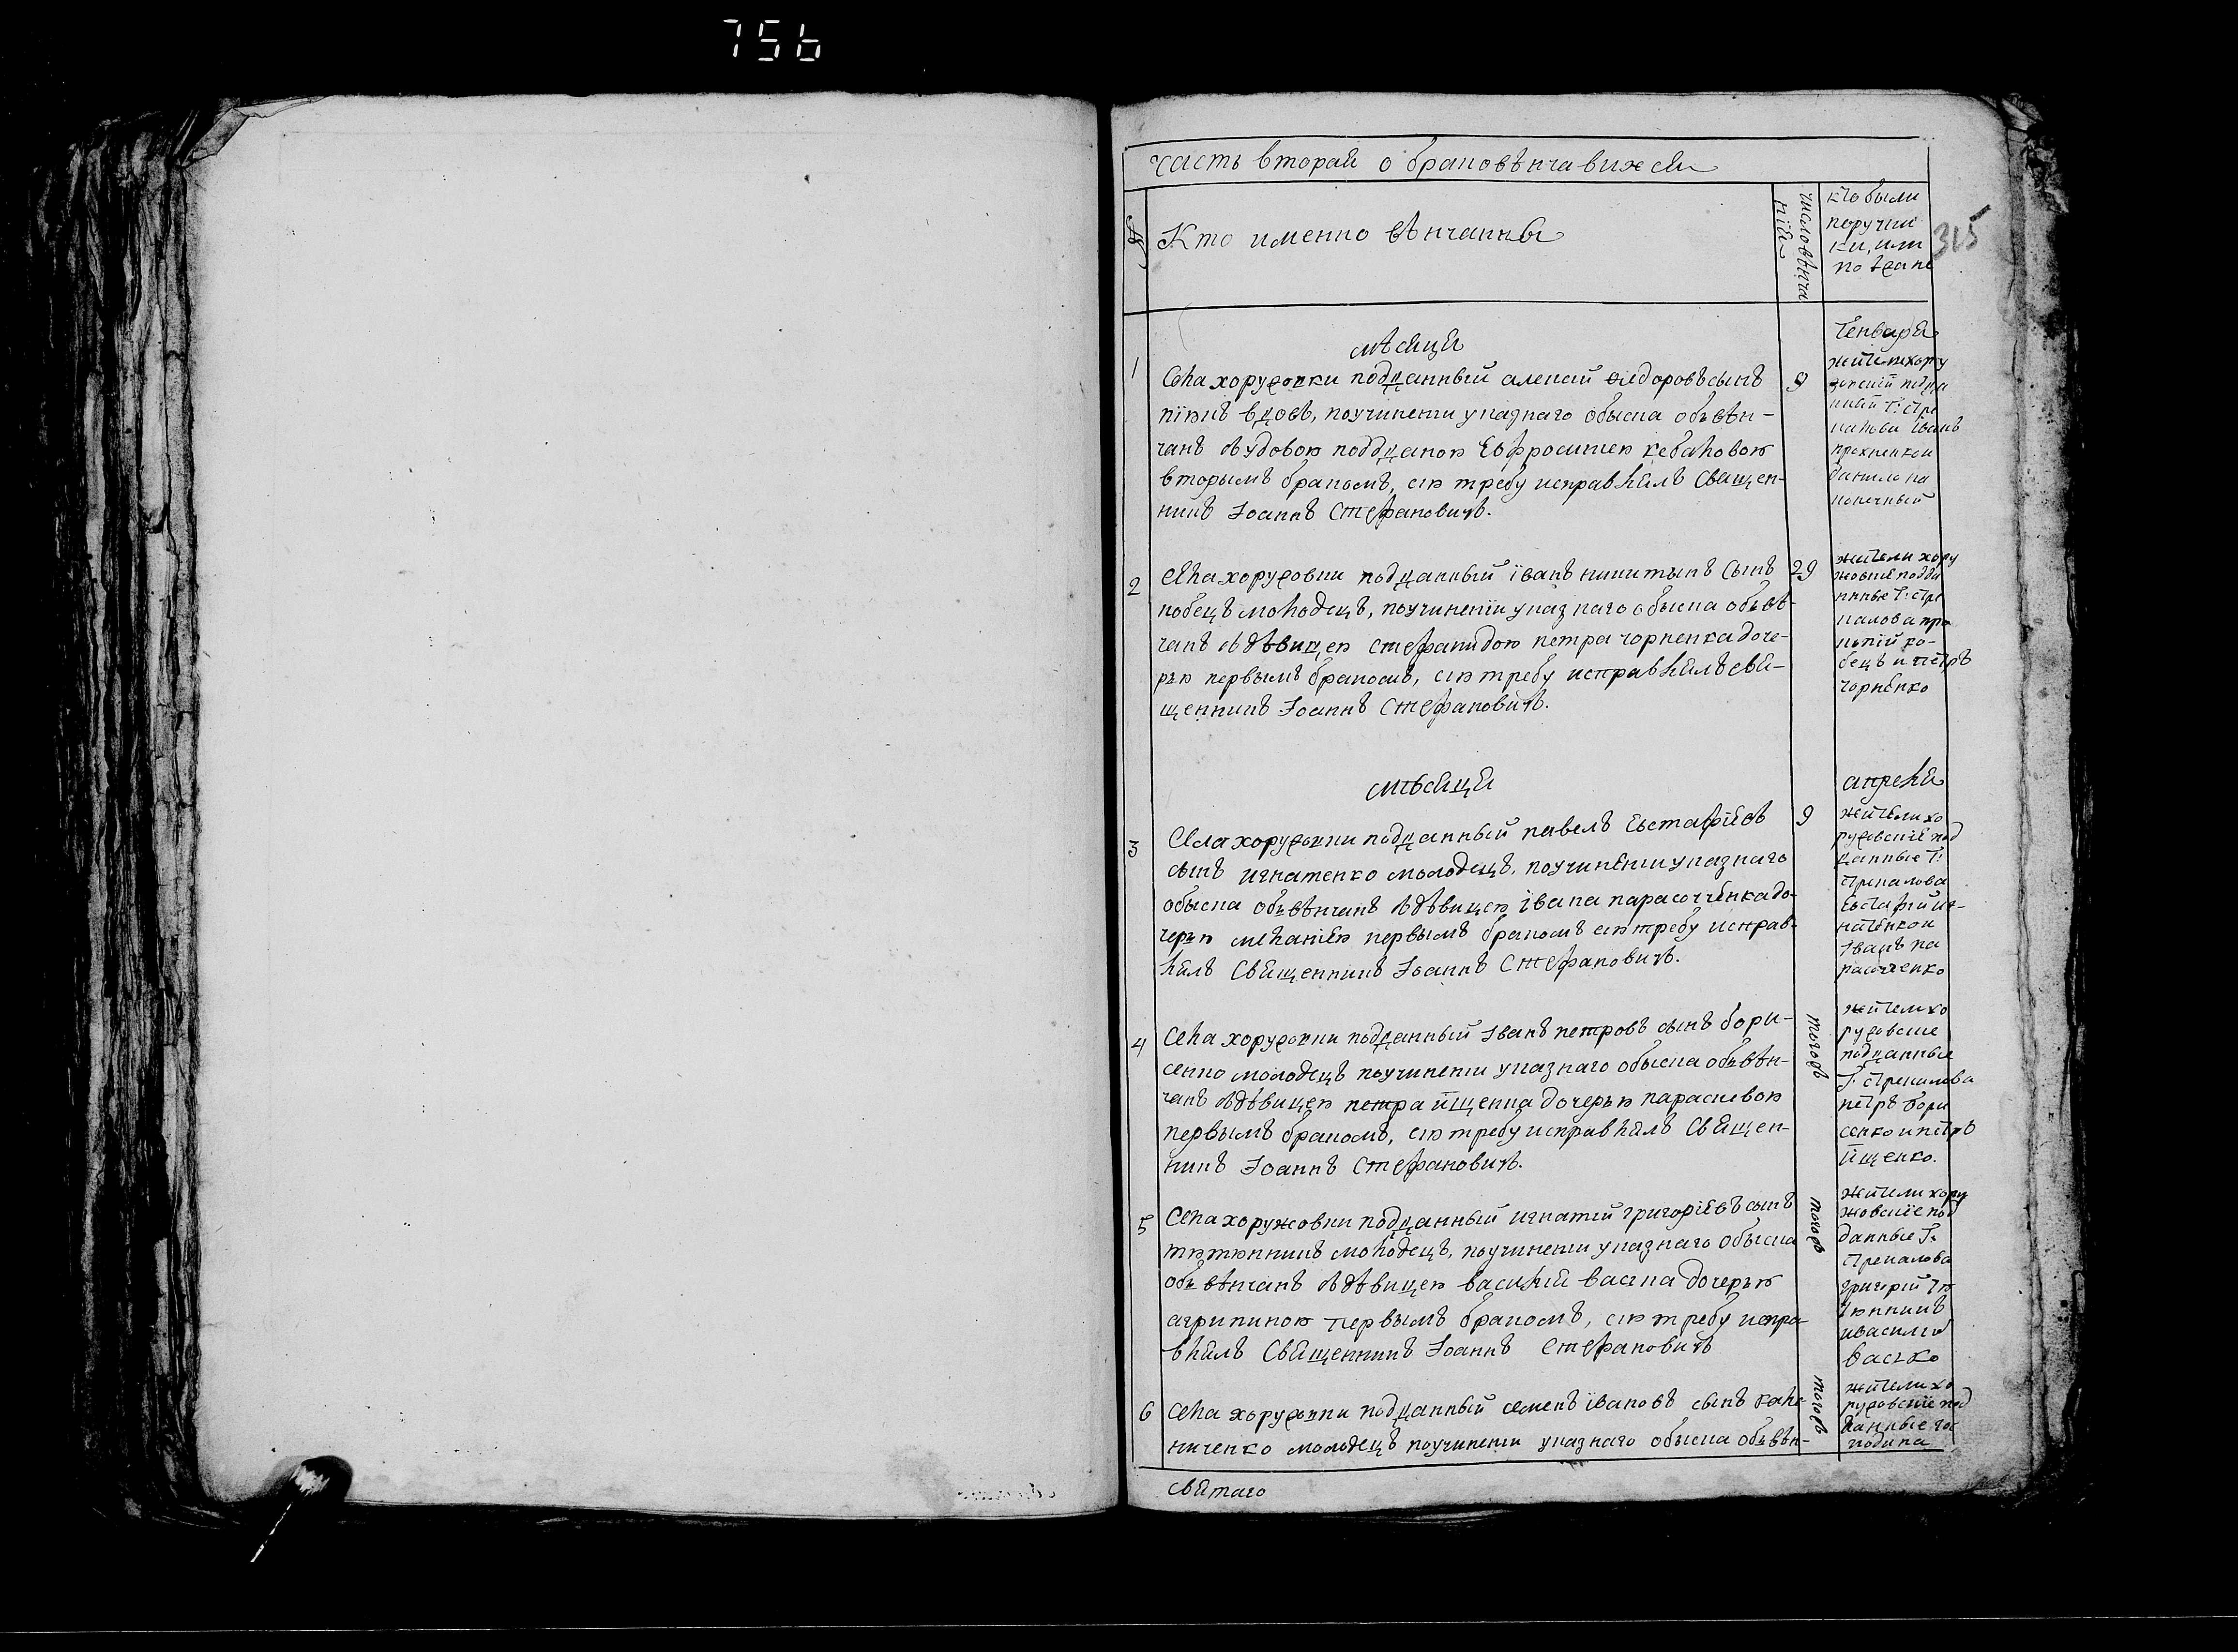 756
часть вторая о браковѣнчавшихся
315
№
Кто именно вѣнчанны
число вѣнча
нія
кто были
поручии
ки, или
поѣзане
мѣсяця
Генваря
1
Села хоружовки подданный алексѣй ѳедоровъ сынъ
вдовъ, поучинении указнаго обыска объвѣн-
чанъ зъудовою подданою Евфросинею
вторымъ бракомъ, сію требу исправлялъ Священ-
никъ Іоаннъ Стефановичъ.
9
жители хору
жовскіи подда
нныи Г: Стре
калова іванъ
данило
2
Села хоружовки подданный іванъ никитинъ сынъ
кобецъ молодецъ, поучинении указнаго обыска объвѣ-
чанъ здѣвицею стефанидою петра чорненка доче-
рью первымъ бракомъ, сію требу исправлялъ свя-
щенникъ Іоаннъ Стефановичъ.
29
жители хору
жовскіе подда
нные Г: Стре
калова про
копій ко-
бецъ и петръ
чорненко
мѣсяця
апреля
3
Села хоружовки подданный павелъ Евстафіевъ
сынъ игнатенко молодецъ, поучинении указнаго
обыска объвѣнчанъ здѣвицею івана парасоченка до-
черью меланіею первымъ бракомъ сію требу исправ-
лялъ Священникъ Іоаннъ Стефановичъ.
9
жители хо
ружовские под
данные Г:
Стрекалова
Евстафий иг-
натенко и
іванъ па
расоченко
4
Села хоружовки подданный іванъ петровъ сынъ бори-
сенко молодецъ поучинении указнаго обыска объвѣн-
чанъ здѣвицею петра йщенка дочерью парасковою
первымъ бракомъ, сію требу исправлялъ Священ-
никъ Іоаннъ Стефановичъ.
тогожъ
жители хо
ружовские
подданные
Г: Стрекалова
петръ бори
сенко и петръ
йщенко.
5
Села хоружовки подданный игнатий григоріевъ сынъ
тютюнникъ молодецъ, поучинении указнаго обыска
объвѣнчанъ здѣвицею василия васка дочерью
агрипиною первымъ бракомъ, сію требу испра-
влялъ Священникъ Іоаннъ Стефановичъ
тогожъ
жители хору
жовские под
данные Г:
Стрекалова
григорий тю
тюнникъ
и василий
васько
6
Села хоружовки подданный семенъ івановъ сынъ кали
ниченко молодецъ поучинении указнаго обыска объвѣн-
тогожъ
жители хо
ружовские под
данные гос
подина
святаго